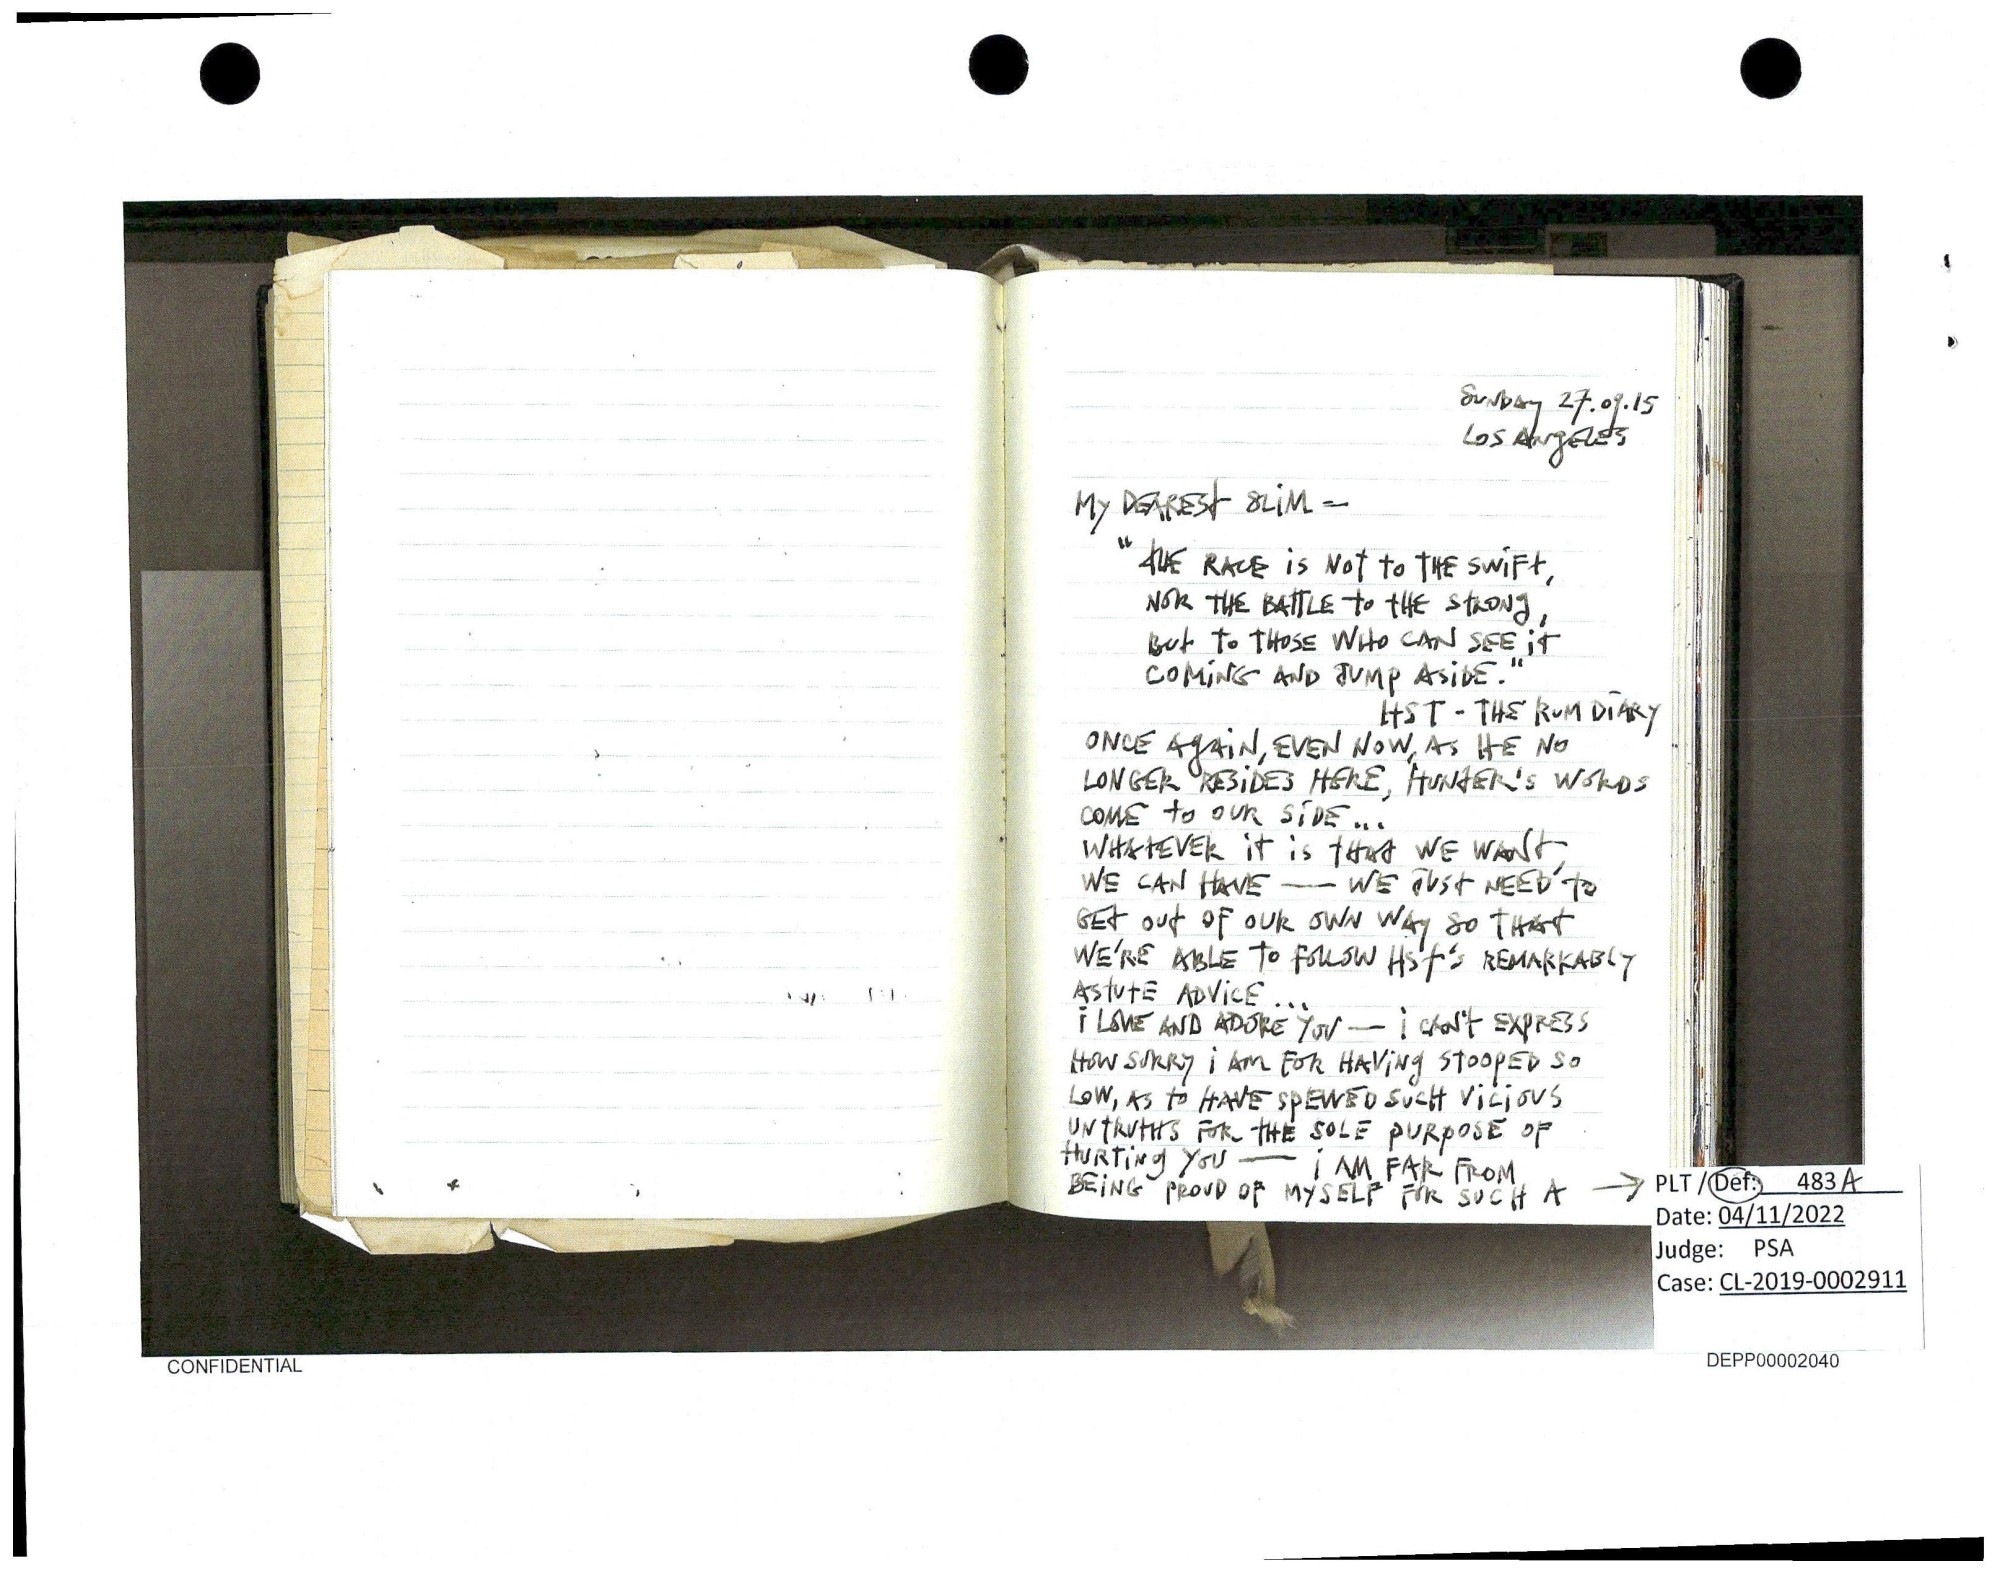 Sunday 27.09.15
Los Angeles
My DEAREST SLiM =
"tHE RACE is Not to THE SWiFt,
NOR THE BAttLE to tHE StRONg,
But to THOSE WHO CAN SEE it
COMiNG AND JUMP ASiDE."
HST - THE RUM DiARY
ONCE AgAiN, EVEN NOW, As HE NO
LONGER RESiDES HERE, HUNtER'S WORDS
COME to OUR SiDE...
WHAtEVER it is tHAt WE WANt,
WE CAN HAVE — WE JUSt NEED to
GEt out OF OUR OWN WAy SO tHAt
WE'RE ABLE to FOLLOW HSt's REMARKABLY
AStUtE ADViCE...
i LOVE AND ADORE YOU — i CAN't EXPRESS
HOW SORRy i AM FOR HAViNg StOOPED SO
LOW, AS to HAVE SPEWED SUCH ViCiOUS
UNtRUtHS FOR tHE SOLE PURPOSE OF
HURTiNg YOU — i AM FAR FROM
BEiNG PROUD OF MYSELF FOR SUCH A →
PLT / Def: 483 A
Date: 04/11/2022
Judge: PSA
Case: CL-2019-0002911
CONFIDENTIAL
DEPP00002040